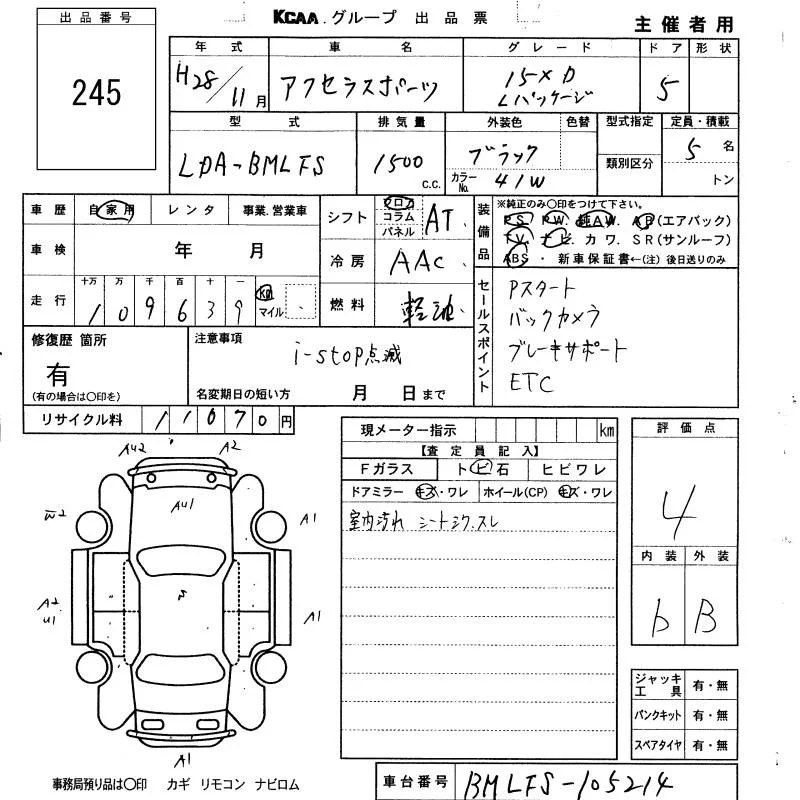 出品番号
245
KCAA.グループ 出品票
主催者用
年式 車名 グレード ドア 形状
H28/11月 アクセラスポーツ 15XD Lパッケージ 5
型式 排気量 外装色 色替 型式指定 定員・積載
LDA-BMLFS 1500 C.C. ブラック 類別区分 5名
カラーNo. 41W トン
車歴 自家用 レンタ 事業.営業車
シフト フロア コラム パネル AT
装備品 ※純正のみ〇印をつけて下さい。
PS. PW. 純AW. AB(エアバック)
TV. ナビ. カワ. SR(サンルーフ)
ABS・新車保証書←(注)後日送りのみ
車検 年 月
冷房 AAC
走行 十万 万 千 百 十 一
109639 Km マイル
燃料 軽油
セールスポイント
Pスタート
バックカメラ
ブレーキサポート
ETC
修復歴 箇所
有
(有の場合は〇印を)
注意事項
i-stop点滅
名変期日の短い方 月 日まで
リサイクル料 11070円
現メーター指示 km
【査定員記入】
Fガラス トビ石 ヒビワレ
ドアミラー キズ・ワレ ホイール(CP) キズ・ワレ
室内汚れ シートシワ.スレ
評価点
4
内装 外装
b B
AU2 A2
AU1
W2 A1
A2 U1 A1
A1
ジャッキ工具 有・無
パンクキット 有・無
スペアタイヤ 有・無
事務局預り品は〇印 カギ リモコン ナビロム
車台番号 BMLFS-105214